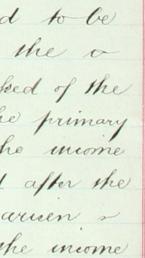 d to be
the a
ked of the
he primary
the income
d after the
arisen &
the income